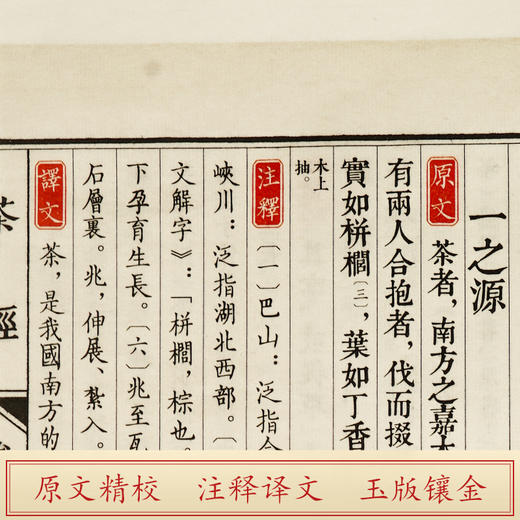 一之源
原文 茶者，南方之嘉木
有兩人合抱者，伐而掇
實如栟櫚〔三〕，葉如丁香
木上
抽。
注釋 〔一〕巴山：泛指
峽川：泛指湖北西部。〔
文解字》：「栟櫚，棕也。
下孕育生長。〔六〕兆至瓦
石層裏。兆，伸展、紮入。
譯文 茶，是我國南方的
茶經
原文精校 注释译文 玉版镶金